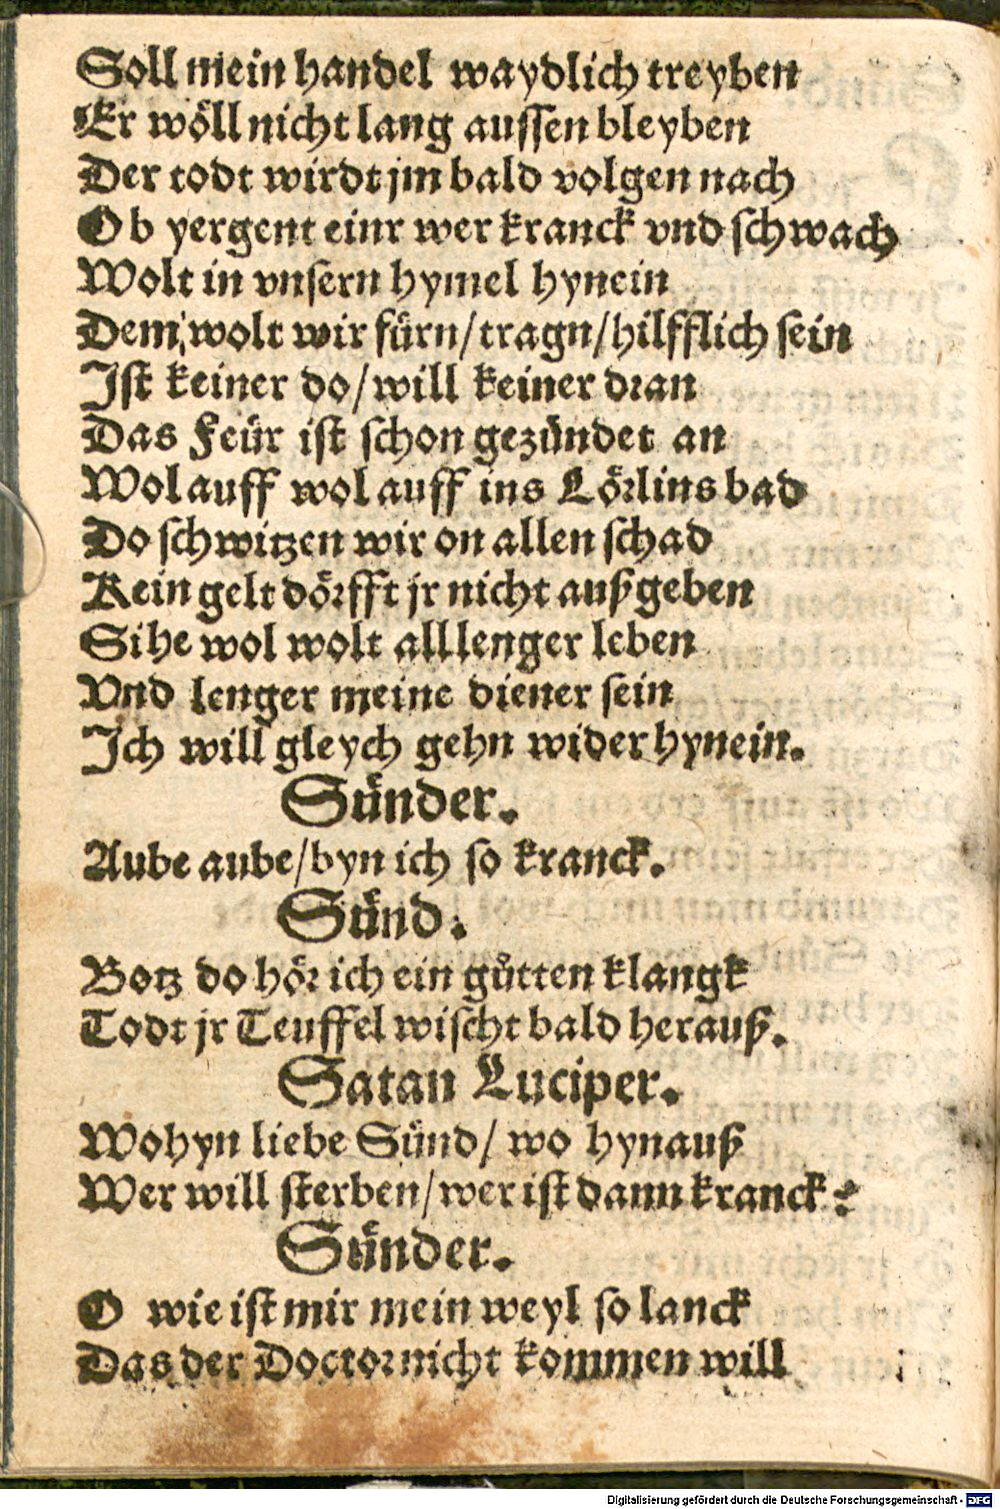 Soll mein handel waydlich treyben
Er wöll nicht lang aussen bleyben
Der todt wirdt jm bald volgen nach
Ob yergent einr wer kranck vnd schwach
Wolt in vnsern hymel hynein
Dem wolt wir fürn/tragn/hilfflich sein
Ist keiner do/will keiner dran
Das Feür ist schon gezündet an
Wolauff wolauff ins Lörlins bad
Do schwitzen wir on allen schad
Kein gelt dörfft jr nicht außgeben
Sihe wol wolt alllenger leben
Vnd lenger meine diener sein
Ich will gleych gehn wider hynein.
Sünder.
Aube aube/byn ich so kranck.
Sünd.
Botz do hör ich ein gůtten klangk
Todt jr Teuffel wischt bald herauß.
Satan Luciper.
Wohyn liebe Sünd/ wo hynauß
Wer will sterben/wer ist dann kranck?
Sünder.
O wie ist mir mein weyl so lanck
Das der Doctor nicht kommen will
Digitalisierung gefördert durch die Deutsche Forschungsgemeinschaft - DFG